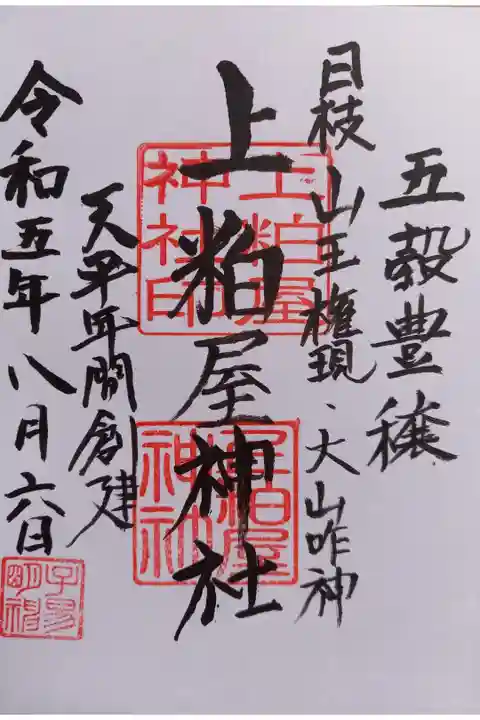 五穀豊穣
日枝山王権現、大山咋神
上粕屋神社
天平年間創建
令和五年八月六日
上粕屋
神社印
子易
明神